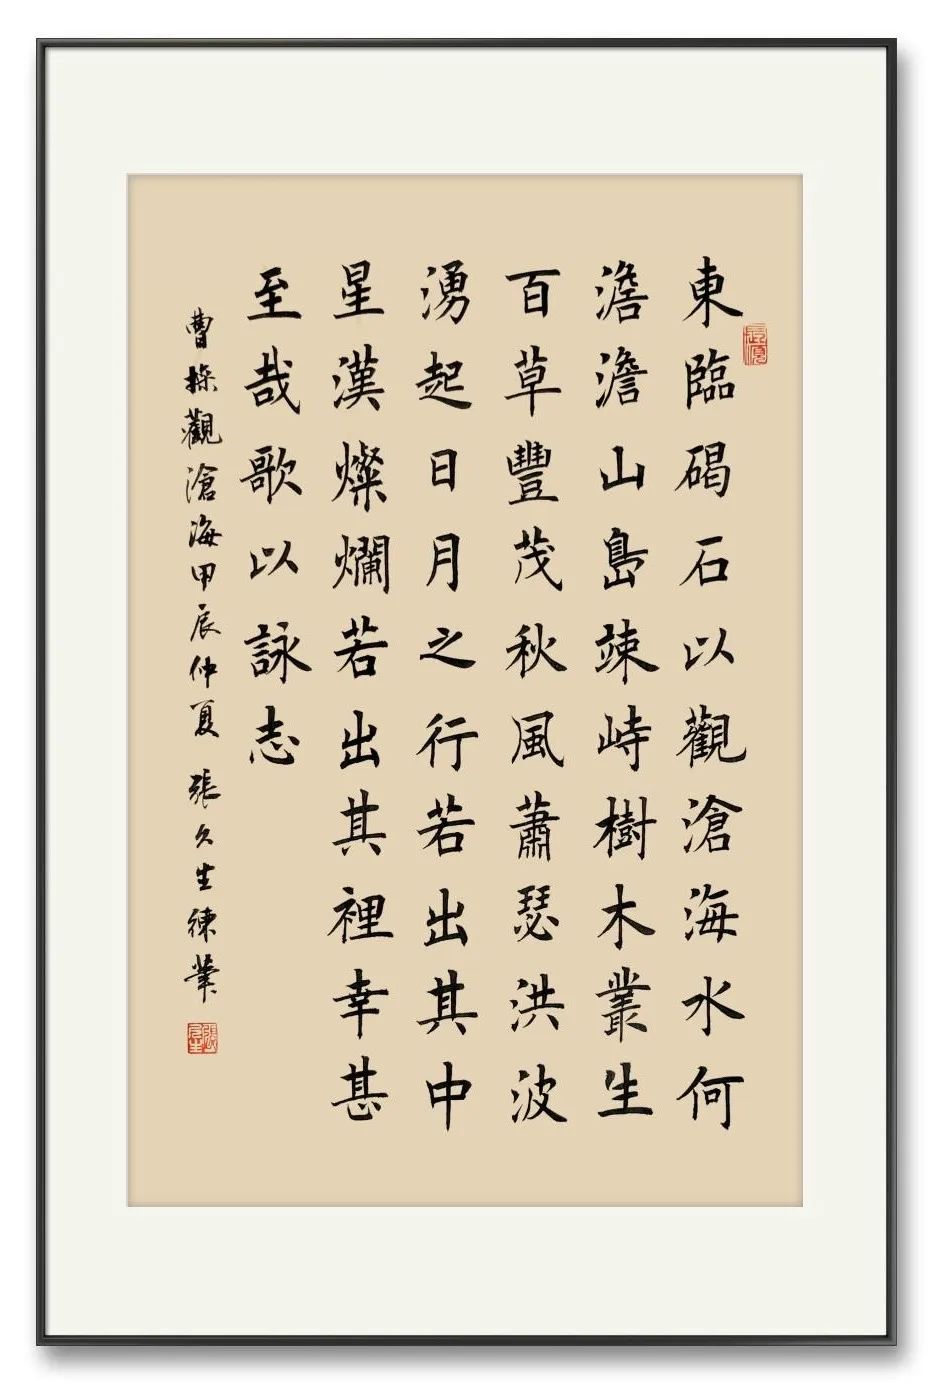 東臨碣石以觀滄海水何
澹澹山島竦峙樹木叢生
百草豐茂秋風蕭瑟洪波
湧起日月之行若出其中
星漢燦爛若出其裡幸甚
至哉歌以詠志
曹操觀滄海甲辰仲夏 張久生練筆